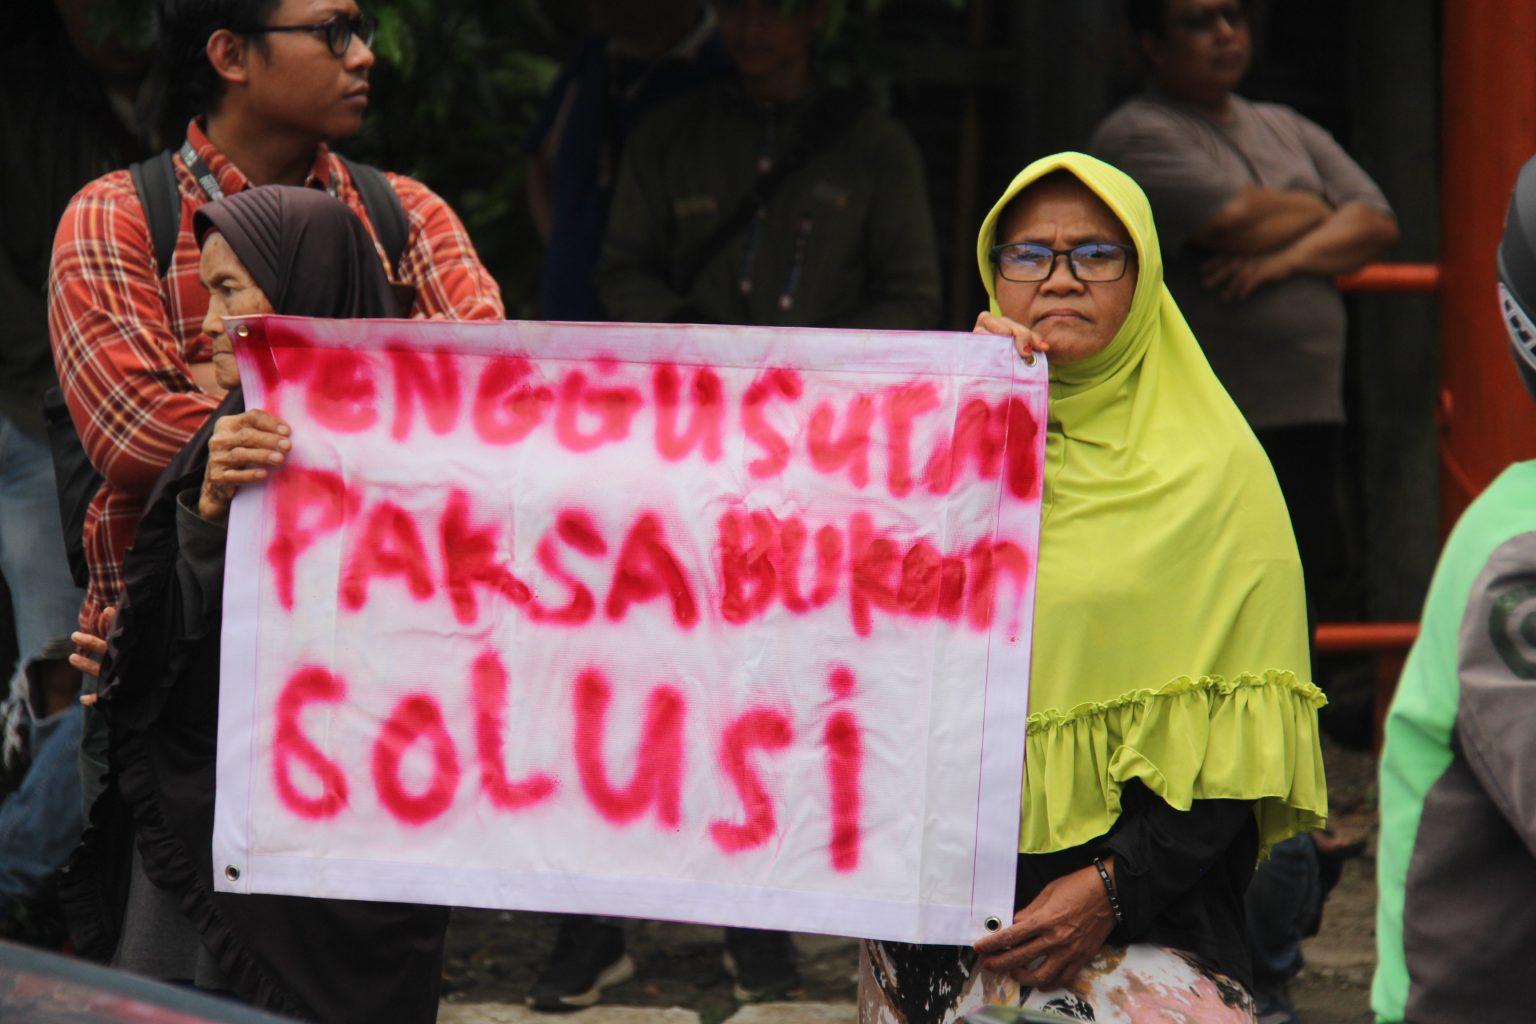 PeNGGUSURAN
PAKSA BUKAN
SOLUSi